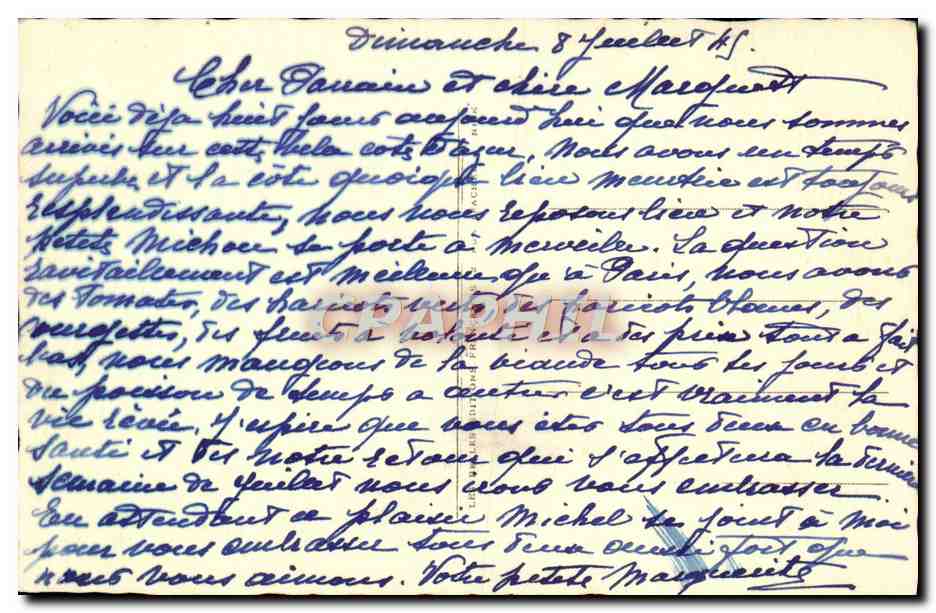 Dimanche 8 Juillet 45.
Cher Parrain et chère Marguerite
Voici déja huit jours aujourd'hui que nous sommes
arrivés sur cette belle cote d'azur, nous avons un temps
superbe et la côte quoique bien meurtrie est toujours
resplendissante, nous nous reposons bien et notre
petite Michou se porte a merveille. La question
ravitaillement est meilleure qu'à Paris, nous avons
des tomates, des haricots verts, des haricots blancs, des
courgettes, des fruits a volonté et a des prix tout a fait
bas, nous mangeons de la viande tous les jours et
du poisson de temps a autres c'est vraiment la
vie rêvée. J'espère que vous êtes tous deux en bonne
santé et dès notre retour qui s'affectuera la dernière
semaine de Juillet nous irons vous embrasser
En attendant ce plaisir Michel se joint à moi
pour vous embrasser tous deux aussi fort que
nous vous aimons. Votre petite Marguerite
CPAPHIL